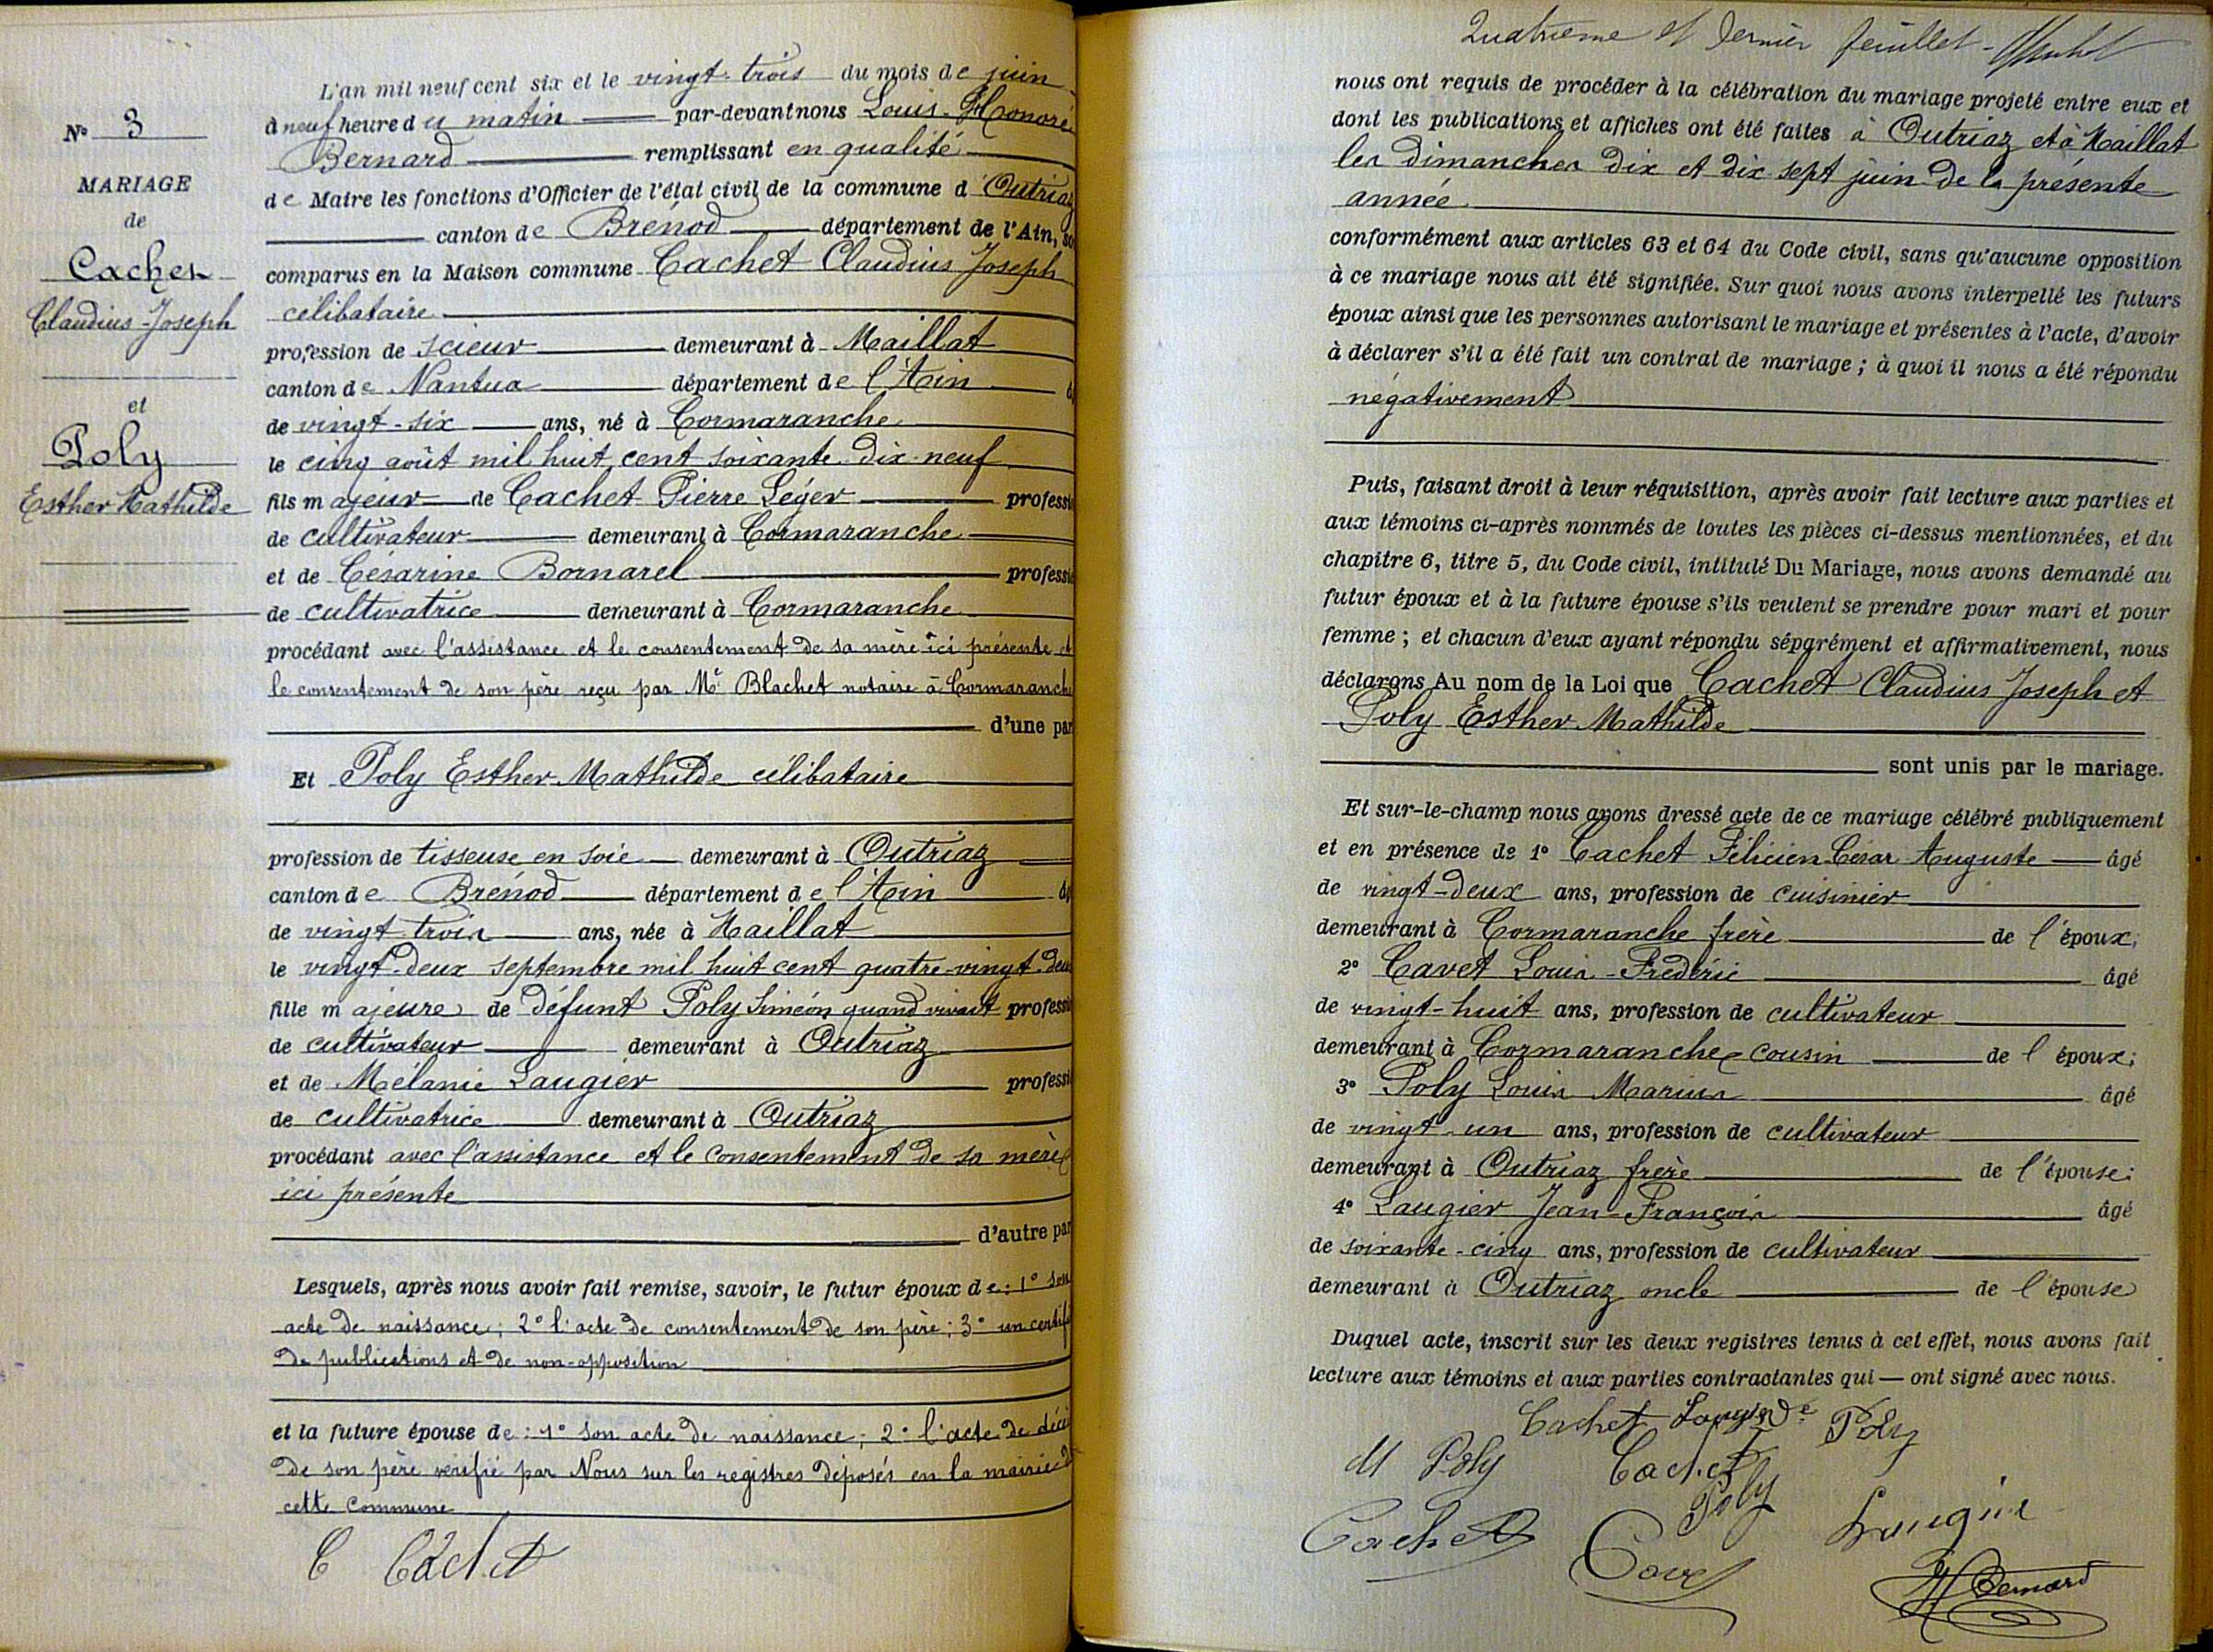 N° 3
MARIAGE
de
Cachet
Claudius-Joseph
et
Poly
Esther Mathilde
L'an mil neuf cent six et le vingt-trois du mois de juin
à neuf heure du matin par-devant nous Louis-Honoré
Bernard remplissant en qualité
de Maire les fonctions d'Officier de l'état civil de la commune d'Outriaz
canton de Brénod département de l'Ain, so
comparus en la Maison commune Cachet Claudius Joseph
célibataire
profession de scieur demeurant à Maillat
canton de Nantua département de l'Ain
de vingt-six ans, né à Cormaranche
le cinq août mil huit cent soixante dix-neuf
fils majeur de Cachet Pierre Léger professi
de cultivateur demeurant à Cormaranche
et de Césarine Bornarel professi
de cultivatrice demeurant à Cormaranche
procédant avec l'assistance et le consentement de sa mère ici présente et
le consentement de son père reçu par Me Blachet notaire à Cormaranche
d'une par
Et Poly Esther Mathilde célibataire
profession de tisseuse en soie demeurant à Outriaz
canton de Brénod département de l'Ain
de vingt trois ans, née à Maillat
le vingt-deux septembre mil huit cent quatre-vingt-deux
fille majeure de défunt Poly Siméon quand vivait professi
de cultivateur demeurant à Outriaz
et de Mélanie Laugier professi
de cultivatrice demeurant à Outriaz
procédant avec l'assistance et le consentement de sa mère
ici présente
d'autre par
Lesquels, après nous avoir fait remise, savoir, le futur époux de : 1° son
acte de naissance ; 2° l'acte de consentement de son père ; 3° un certif
de publications et de non-opposition
et la future épouse de : 1° son acte de naissance ; 2° l'acte de décè
de son père vérifié par Nous sur les registres déposés en la mairie d
cette commune
C Cachet
Quatrième et dernier feuillet
nous ont requis de procéder à la célébration du mariage projeté entre eux et
dont les publications et affiches ont été faites à Outriaz et à Maillat
les dimanches dix et dix sept juin de la présente
année
conformément aux articles 63 et 64 du Code civil, sans qu'aucune opposition
à ce mariage nous ait été signifiée. Sur quoi nous avons interpellé les futurs
époux ainsi que les personnes autorisant le mariage et présentes à l'acte, d'avoir
à déclarer s'il a été fait un contrat de mariage ; à quoi il nous a été répondu
négativement
Puis, faisant droit à leur réquisition, après avoir fait lecture aux parties et
aux témoins ci-après nommés de toutes les pièces ci-dessus mentionnées, et du
chapitre 6, titre 5, du Code civil, intitulé Du Mariage, nous avons demandé au
futur époux et à la future épouse s'ils veulent se prendre pour mari et pour
femme ; et chacun d'eux ayant répondu séparément et affirmativement, nous
déclarons Au nom de la Loi que Cachet Claudius Joseph et
Poly Esther Mathilde
sont unis par le mariage.
Et sur-le-champ nous avons dressé acte de ce mariage célébré publiquement
et en présence de 1° Cachet Félicien César Auguste âgé
de vingt-deux ans, profession de cuisinier
demeurant à Cormaranche frère de l'époux ;
2° Cavet Louis-Frédéric âgé
de vingt-huit ans, profession de cultivateur
demeurant à Cormaranche cousin de l'époux ;
3° Poly Louis Marius âgé
de vingt-un ans, profession de cultivateur
demeurant à Outriaz frère de l'épouse ;
4° Laugier Jean-François âgé
de soixante-cinq ans, profession de cultivateur
demeurant à Outriaz oncle de l'épouse
Duquel acte, inscrit sur les deux registres tenus à cet effet, nous avons fait
lecture aux témoins et aux parties contractantes qui — ont signé avec nous.
Cachet Laugier Poly
M Poly Cachet
Poly
Cachet Cavet Laugier
Bernard